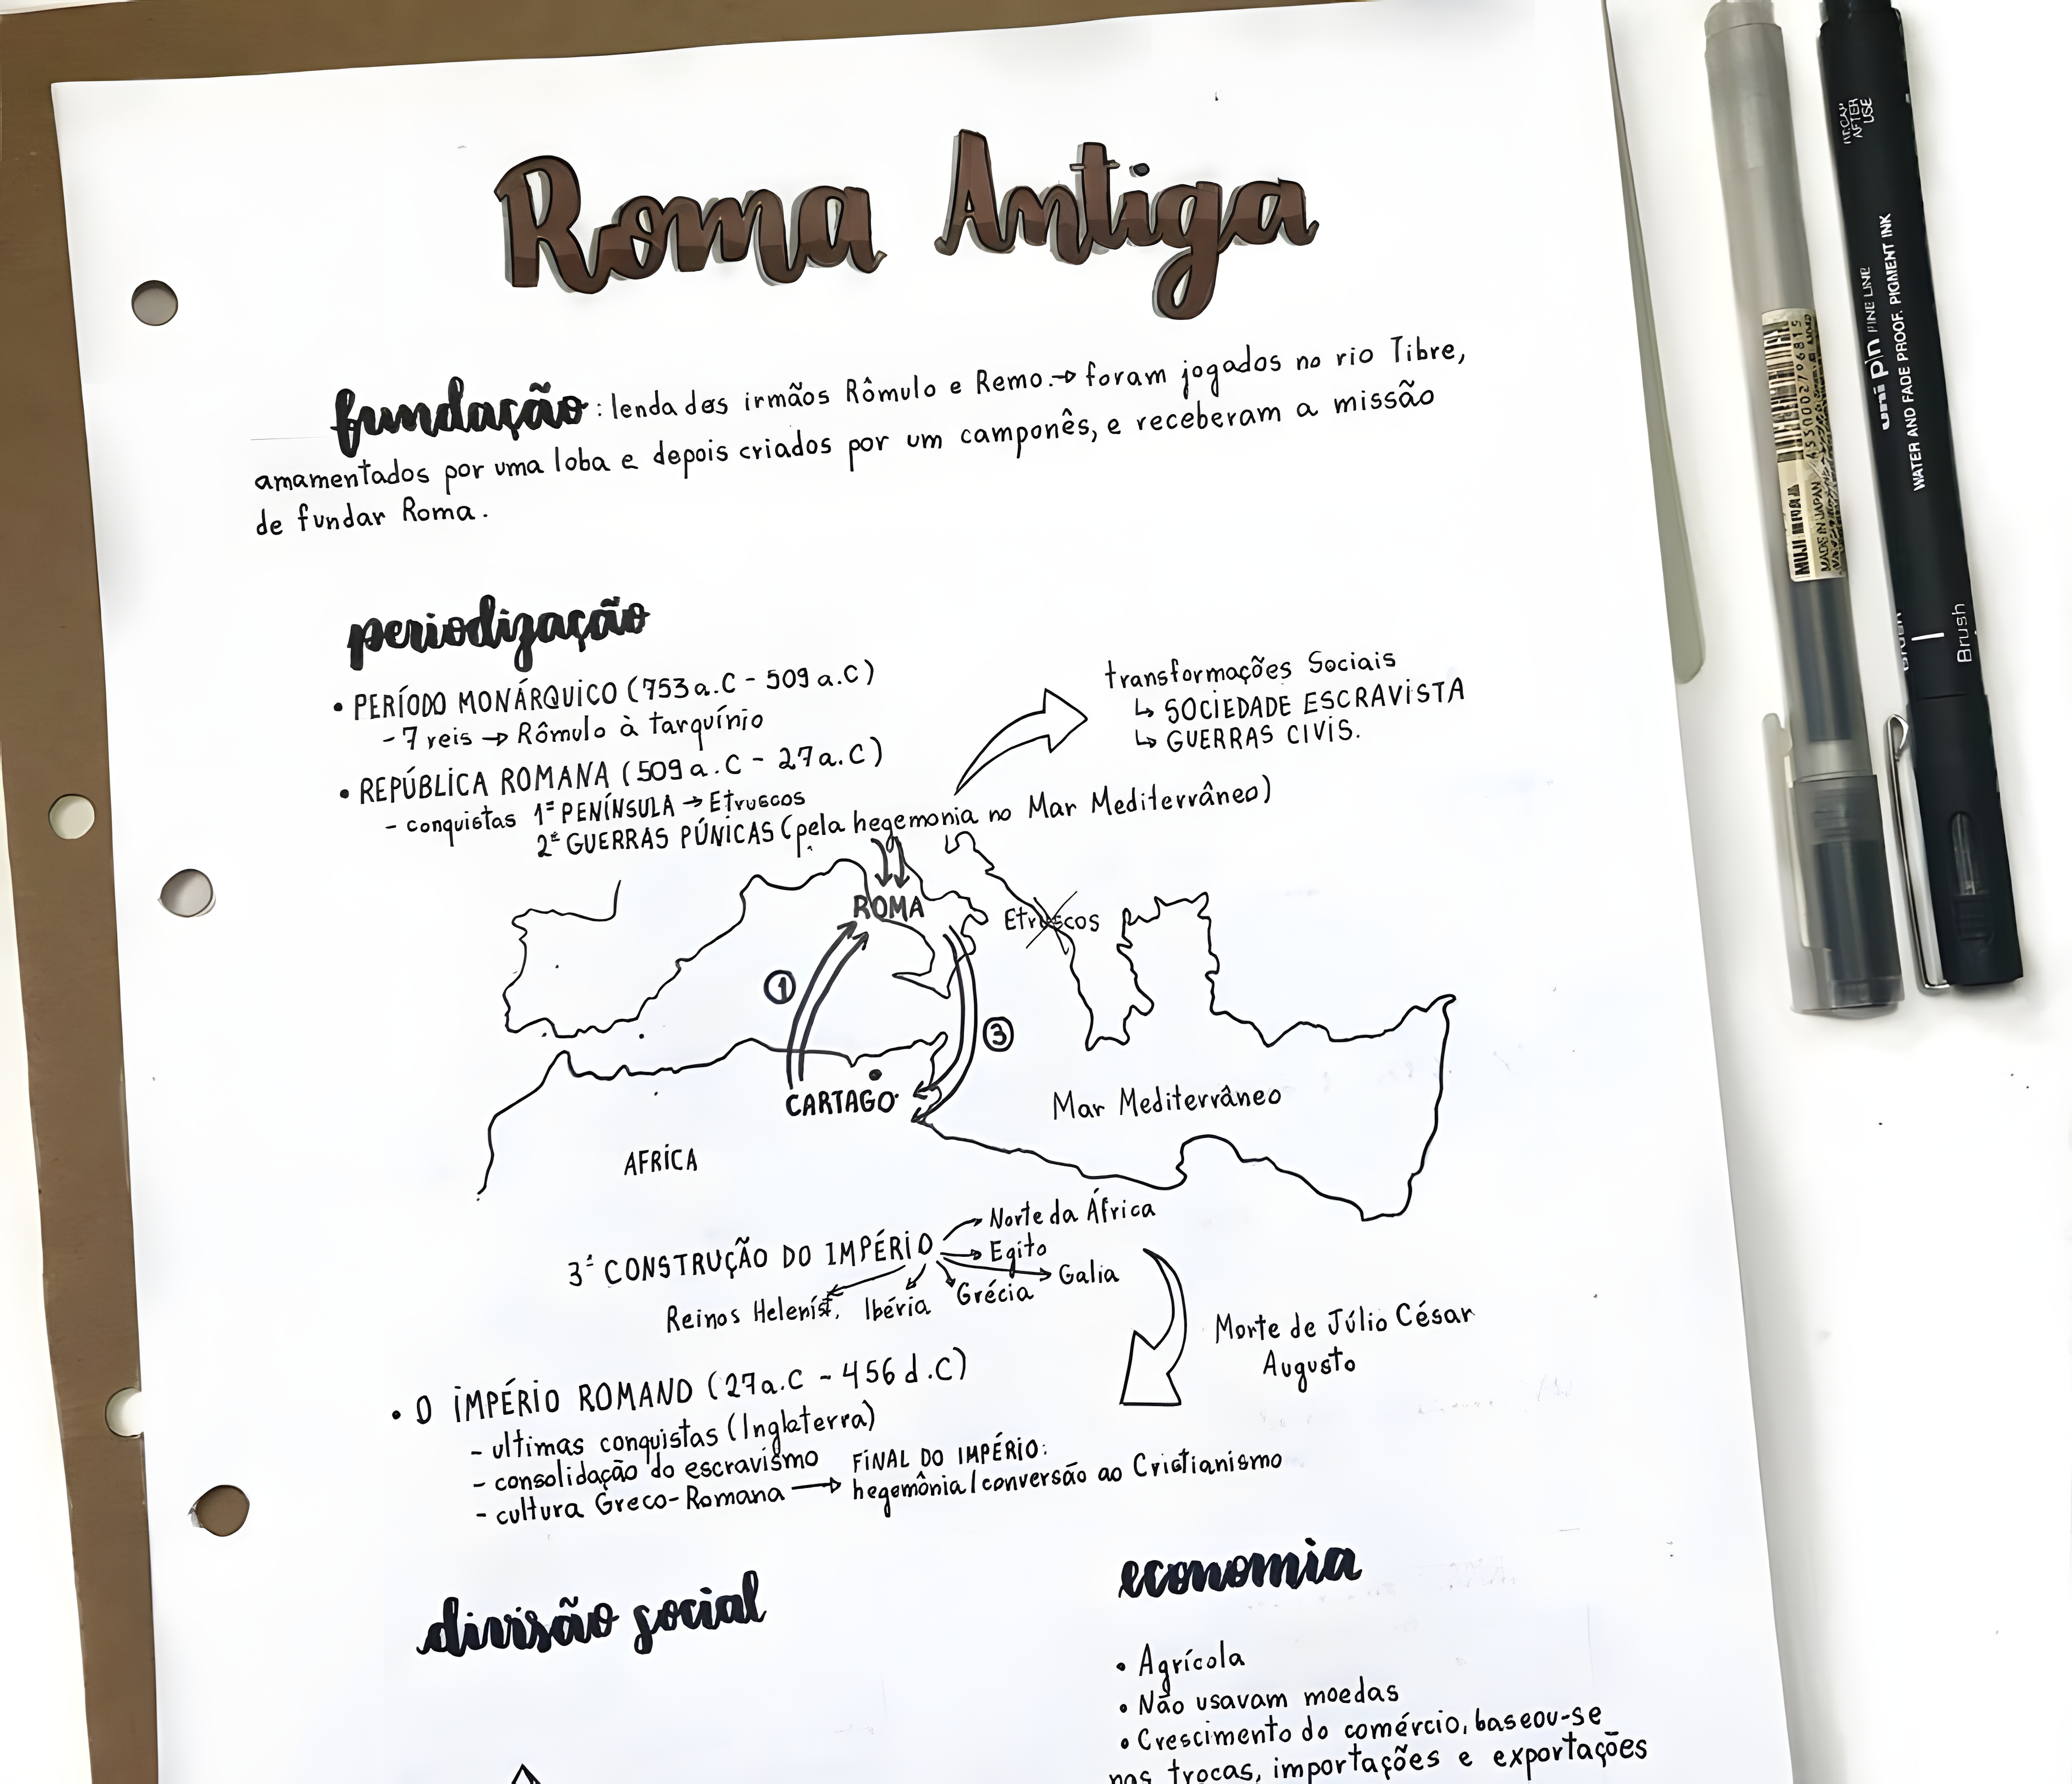 Roma Antiga
fundação: lenda dos irmãos Rômulo e Remo. → foram jogados no rio Tibre,
amamentados por uma loba e depois criados por um camponês, e receberam a missão
de fundar Roma.
periodização
• PERÍODO MONÁRQUICO (753a.C - 509a.C)
- 7 reis → Rômulo à tarquínio
• REPÚBLICA ROMANA (509a.C - 27a.C)
- conquistas 1ª PENÍNSULA → Etruscos
2ª GUERRAS PÚNICAS (pela hegemonia no Mar Mediterrâneo)
transformações Sociais
↳ SOCIEDADE ESCRAVISTA
↳ GUERRAS CIVIS.
ROMA
Etruscos
1
3
CARTAGO
Mar Mediterrâneo
AFRICA
3ª CONSTRUÇÃO DO IMPÉRIO
Norte da África
Egito
Galia
Grécia
Ibéria
Reinos Heleníst.
Morte de Júlio César
Augusto
• O IMPÉRIO ROMANO (27a.C - 456d.C)
- ultimas conquistas (Inglaterra)
- consolidação do escravismo
- cultura Greco-Romana →
FINAL DO IMPÉRIO:
hegemônia/conversão ao Cristianismo
divisão social
economia
• Agrícola
• Não usavam moedas
• Crescimento do comércio, baseou-se
nas trocas, importações e exportações
MUJI
MADE IN JAPAN
RECAP
AFTER
USE
uni pin FINE LINE
WATER AND FADE PROOF. PIGMENT INK
Brush